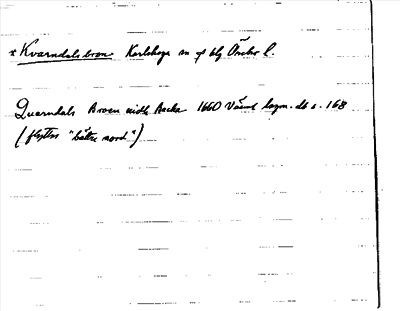 x Kvarndalsbron Karlskoga sn o blg Örebro l.
Quarndals Broen widh Backa 1660 Värml lagm. db s. 168
(flyttas "bättre nord")